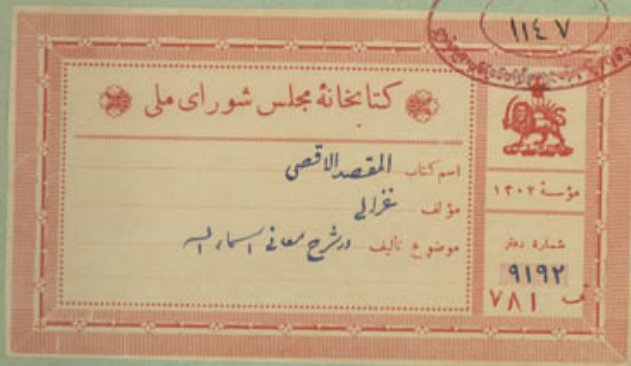 ۱۱۴۷
کتابخانهٔ مجلس شورای ملی
اسم کتاب المقصد الاقصی
مؤلف غزالی
موضوع تألیف در شرح معانی اسماء الله
مؤسسهٔ ۱۳۰۲
شمارهٔ دفتر
۹۱۹۲
ف ۷۸۱